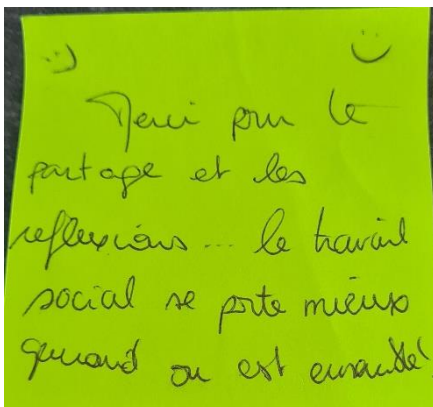 Merci pour le
partage et les
reflexions... le travail
social se porte mieux
quand on est ensemble!